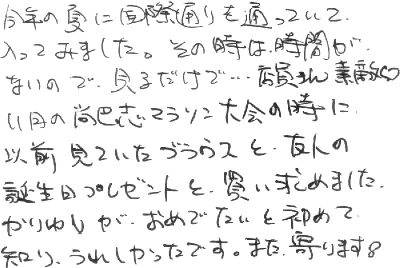 今年の夏に国際通りを通っていて、
入ってみました。その時は、時間が
ないので、見るだけで…店員さん素敵♡
11月の尚巴志マラソン大会の時に
以前見ていたブラウスと、友人の
誕生日プレゼントを、買い求めました。
かりゆしが、おめでたいと初めて
知り、うれしかったです。また、寄ります。